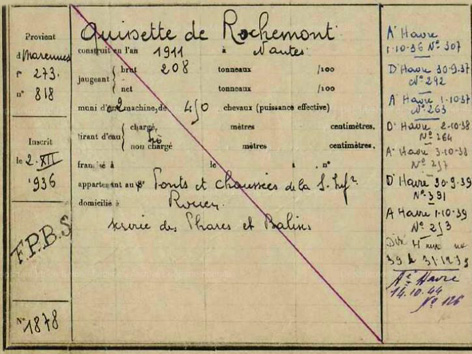 Provient
d Marennes
f° 273.
n° 818
Inscrit
le 2-XII
1936
F.P.B.S
N° 1878
Quinette de Rochemont
construit en l'an 1911 à Nantes
jaugeant { brut 208 tonneaux /100
net tonneaux /100
muni d'une 2 machine, de 450 chevaux (puissance effective)
tirant d'eau { chargé mètres centimètres.
non chargé mètres centimètres.
francisé à le à n°
appartenant aux Ponts et Chaussées de la S. Infre
domicilié à Rouen
service des Phares et Balises
A' Havre
1-10-36 N° 307
D' Havre 30-9-37
N° 292
A' Havre 1-10-37
N° 263
D' Havre 2-10-38
N° 264
A' Havre 3-10-38
N° 257
D' Havre 30-9-39
N° 391
A Havre 1-10-39
N° 253
39 31-12-39
A° Havre
14.10.44
N° 126